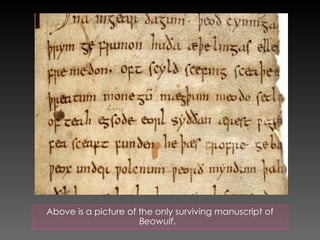 na ingear dagum. þeod cyninga
þrym ge frunon huða æþelingas elle
fre medon. oft scyld scefing sceaþe
þreatum monegū mægþum meodo setl
of teah egsode eorl syððan ærest
fea sceaft funden he þæs frofre geb
ƿeox under ƿolcnum ƿeorð myndum
Above is a picture of the only surviving manuscript of
Beowulf.